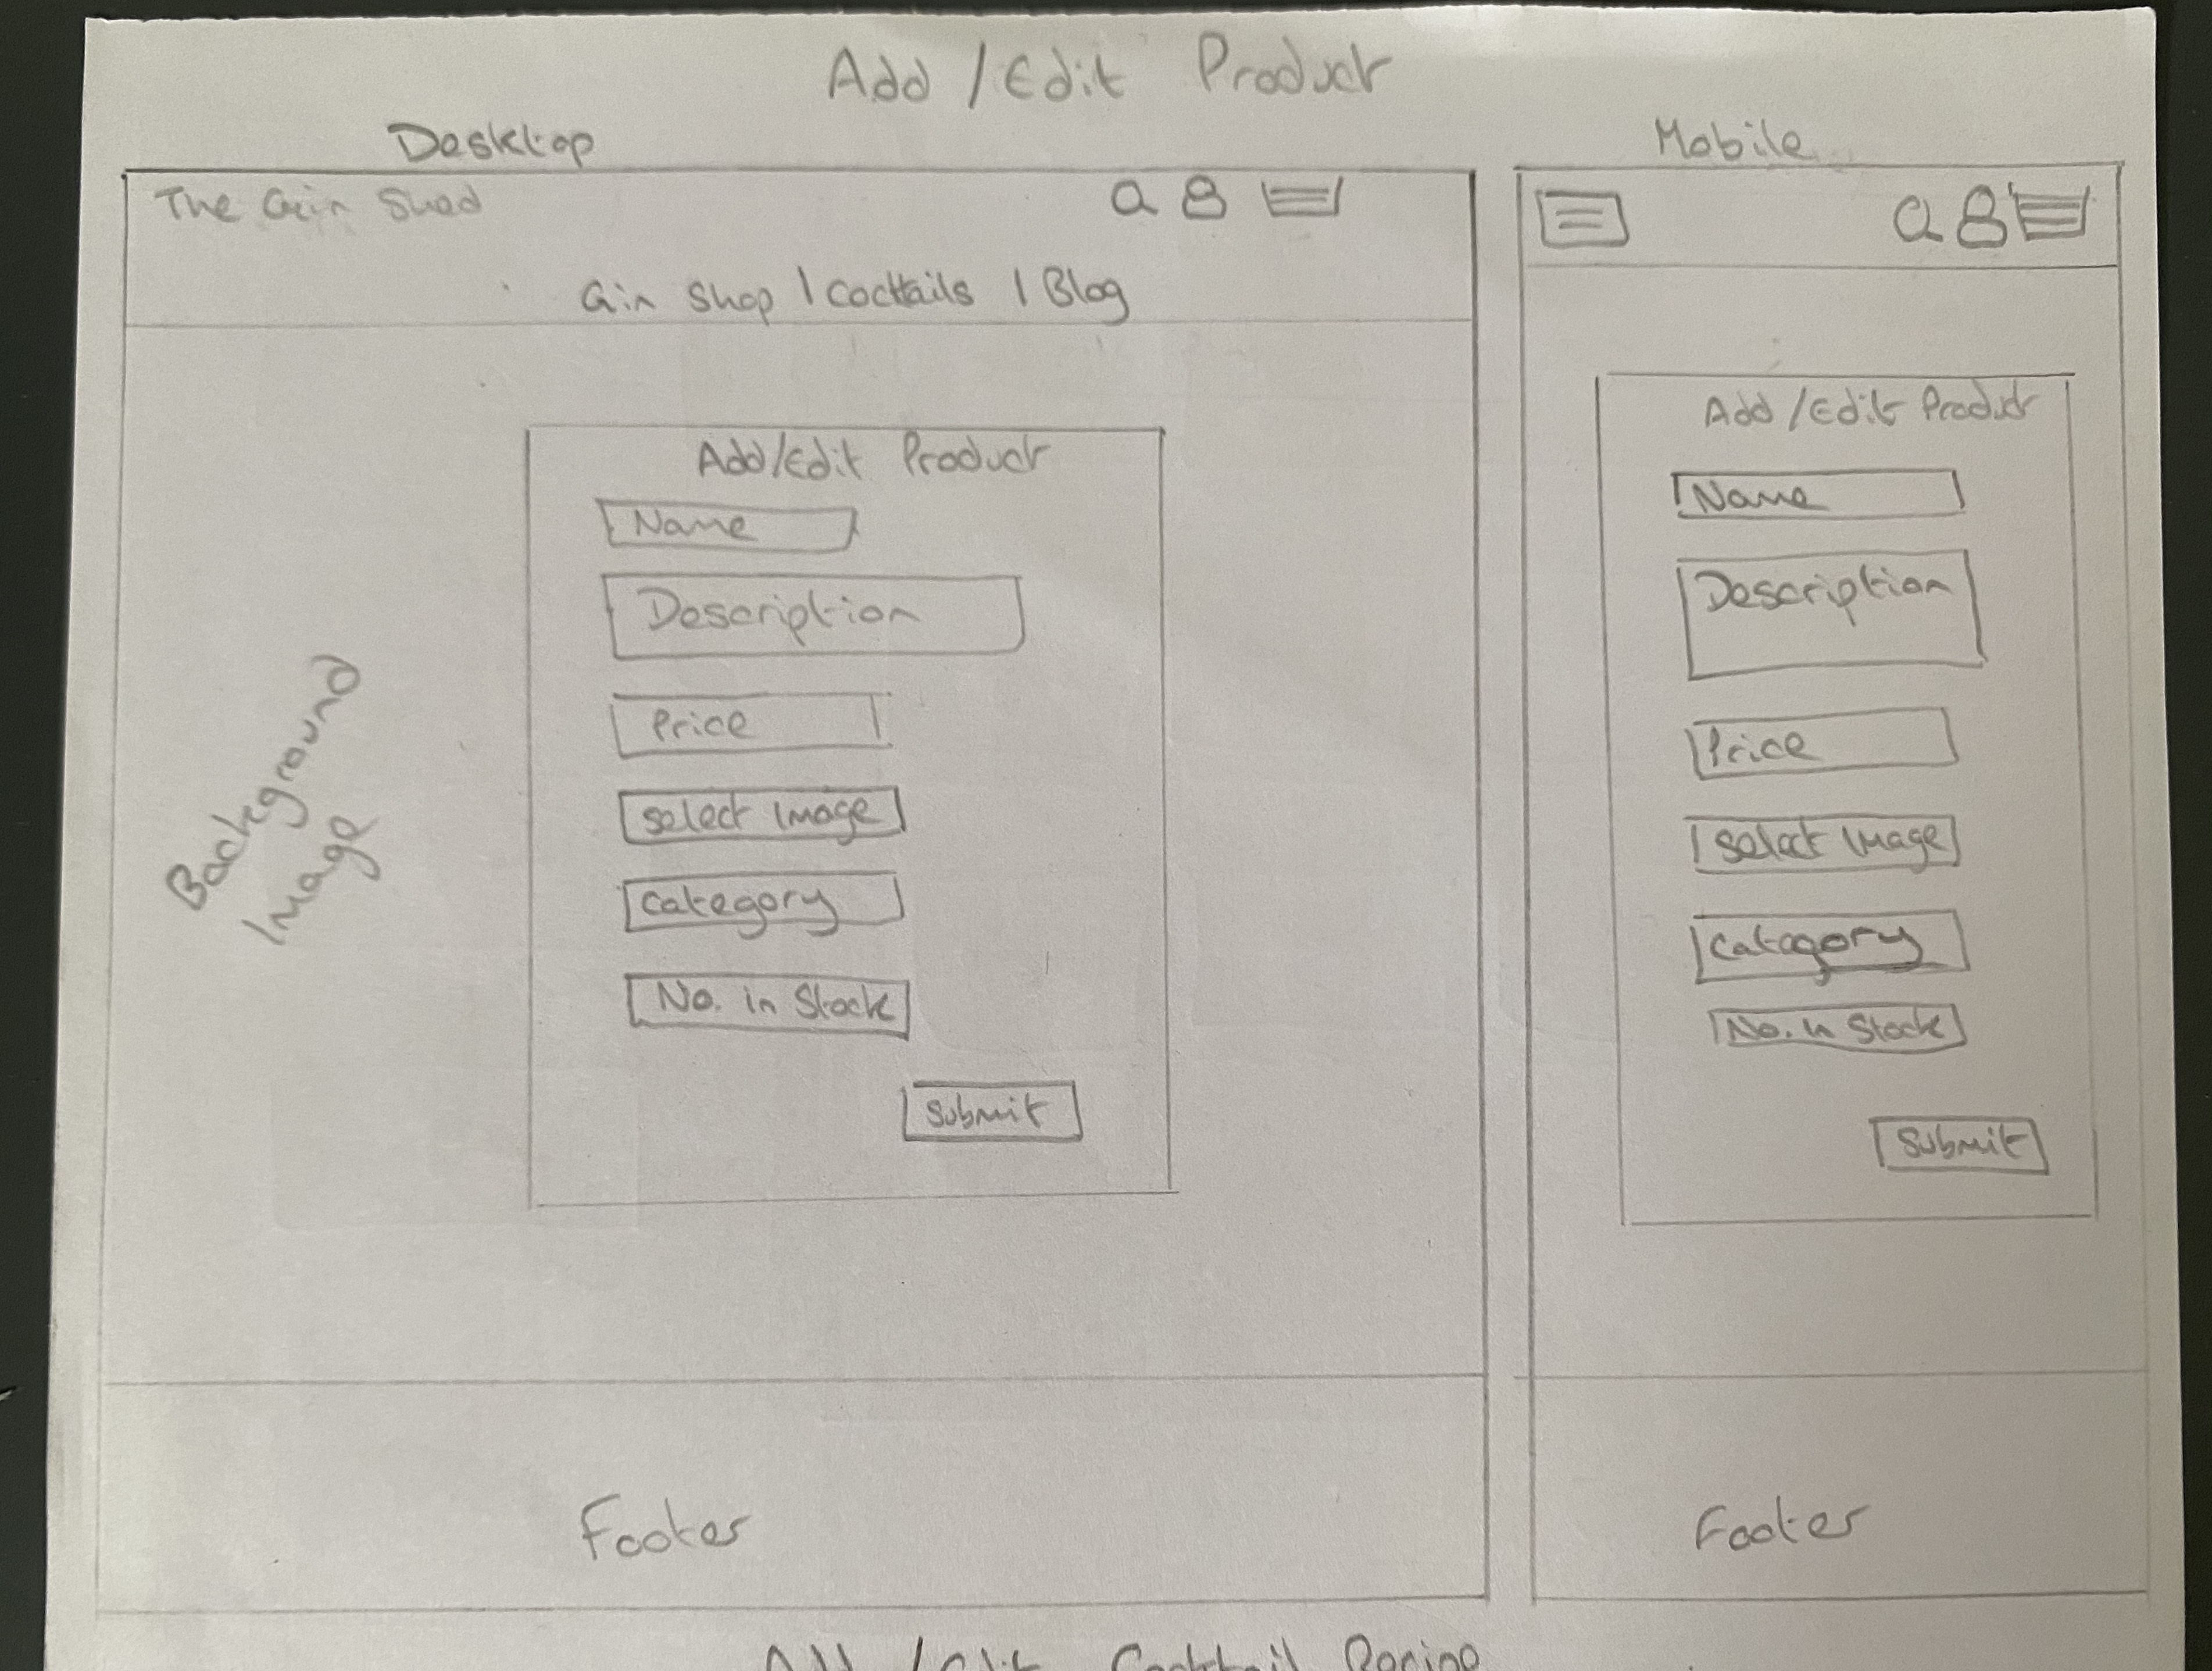 Add / Edit Product
Desktop
The Gin Shed
Gin Shop | Cocktails | Blog
Background
Image
Add/Edit Product
Name
Description
Price
Select Image
Category
No. in Stock
Submit
Footer
Mobile
Add / Edit Product
Name
Description
Price
Select Image
Catagory
No. in Stock
Submit
Footer
Add / Edit Cocktail Recipe